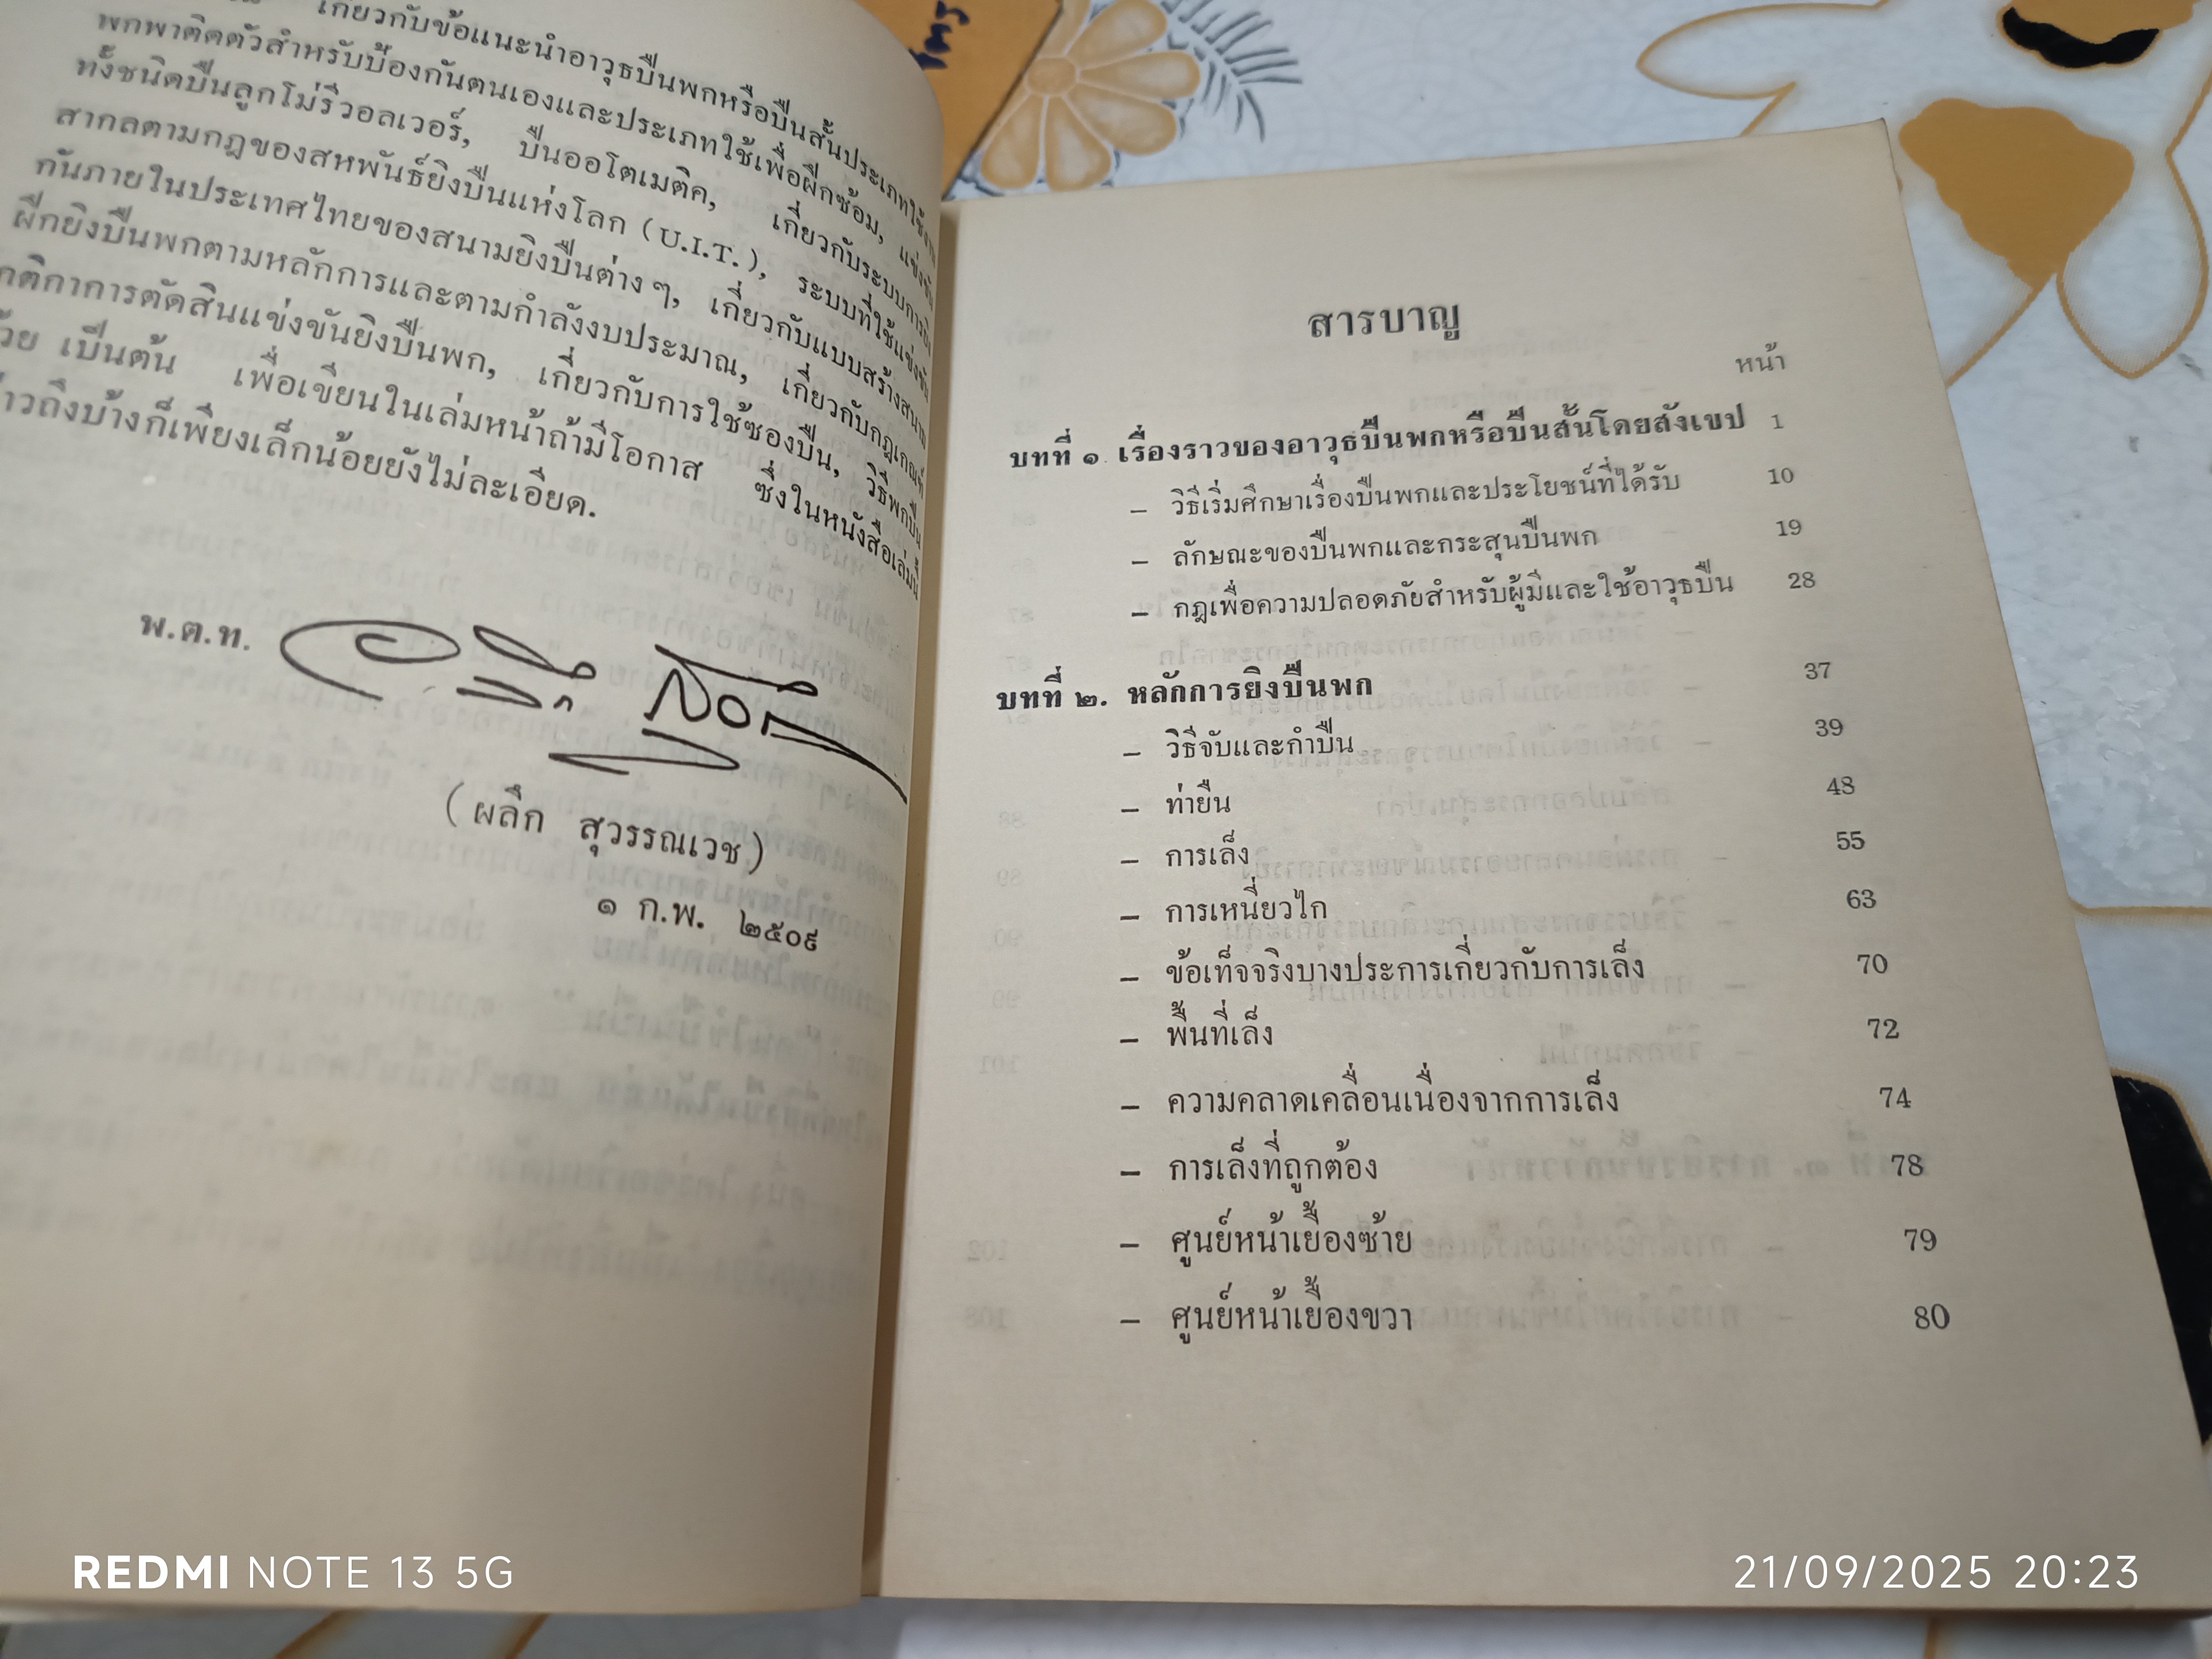 เกี่ยวกับข้อแนะนำอาวุธปืนพกหรือปืนสั้นประเภทใช้งาน
พกพาติดตัวสำหรับป้องกันตนเองและประเภทใช้เพื่อฝึกซ้อม, แข่งขัน
ทั้งชนิดปืนลูกโม่รีวอลเวอร์, ปืนออโตเมติค, เกี่ยวกับระบบการยิง
สากลตามกฎของสหพันธ์ยิงปืนแห่งโลก (U.I.T.), ระบบที่ใช้แข่งขัน
กันภายในประเทศไทยของสนามยิงปืนต่าง ๆ, เกี่ยวกับแบบสร้างสนาม
ฝึกยิงปืนพกตามหลักการและตามกำลังงบประมาณ, เกี่ยวกับกฎเกณฑ์
กติกาการตัดสินแข่งขันยิงปืนพก, เกี่ยวกับการใช้ซองปืน, วิธีพกปืน
ด้วย เป็นต้น เพื่อเขียนในเล่มหน้าถ้ามีโอกาส ซึ่งในหนังสือเล่มนี้
กล่าวถึงบ้างก็เพียงเล็กน้อยยังไม่ละเอียด.
พ.ต.ท.
(ผลึก สุวรรณเวช)
๑ ก.พ. ๒๕๐๙
สารบาญ
หน้า
บทที่ ๑. เรื่องราวของอาวุธปืนพกหรือปืนสั้นโดยสังเขป 1
– วิธีเริ่มศึกษาเรื่องปืนพกและประโยชน์ที่ได้รับ 10
– ลักษณะของปืนพกและกระสุนปืนพก 19
– กฎเพื่อความปลอดภัยสำหรับผู้มีและใช้อาวุธปืน 28
บทที่ ๒. หลักการยิงปืนพก 37
– วิธีจับและกำปืน 39
– ท่ายืน 48
– การเล็ง 55
– การเหนี่ยวไก 63
– ข้อเท็จจริงบางประการเกี่ยวกับการเล็ง 70
– พื้นที่เล็ง 72
– ความคลาดเคลื่อนเนื่องจากการเล็ง 74
– การเล็งที่ถูกต้อง 78
– ศูนย์หน้าเยื้องซ้าย 79
– ศูนย์หน้าเยื้องขวา 80
REDMI NOTE 13 5G
21/09/2025 20:23